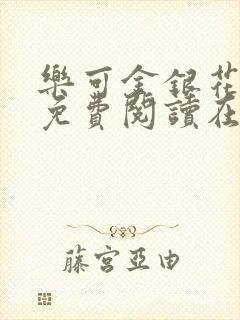 樂可金銀花
免費閱讀在
藤宮亞由